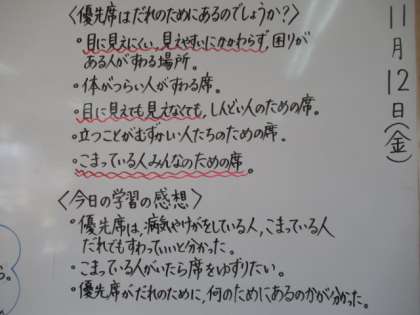 11月12日(金)
〈優先席はだれのためにあるのでしょうか?〉
・目に見えにくい,見えやすいにかかわらず,困りが
ある人がすわる場所。
・体がつらい人がすわる席。
・目に見えても見えなくても,しんどい人のための席。
・立つことがむずかしい人たちのための席。
・こまっている人みんなのための席。
〈今日の学習の感想〉
・優先席は,病気やけがをしている人,こまっている人
だれでもすわっていいと分かった。
・こまっている人がいたら席をゆずりたい。
・優先席がだれのために,何のためにあるのかが分かった。
ら。